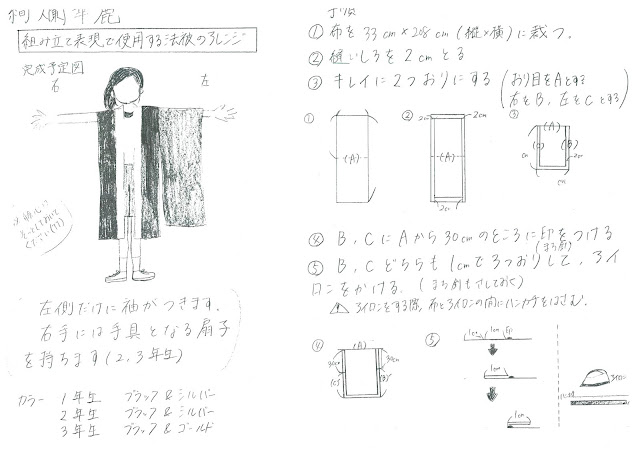 組み立て表現で使用する法被のアレンジ
完成予定図
右
左
左側だけに袖がつきます.
右手には手具となる扇子
を持ちます(2,3年生)
カラー 1年生 ブラック&シルバー
2年生 ブラック&シルバー
3年生 ブラック&ゴールド
① 布を 33cm×208cm (縦×横)に裁つ.
② 縫いしろを 2cm とる
③ キレイに2つおりにする (おり目をAとする
右をB, 左をCとする)
①
(A)
②
2cm
2cm
(A)
2cm
③
(A)
(C)
(B)
2cm
cm
cm
④ B, CにAから30cmのところに印をつける
(まち針)
⑤ B, Cどちらも1cmで3つおりして, アイ
ロンをかける. (まち針もさしておく)
⚠ アイロンをする際, 布とアイロンの間にハンカチをはさむ.
④
(A)
30cm
30cm
(C)
(B)
⑤
1cm
1cm
印
1cm
1cm
アイロン